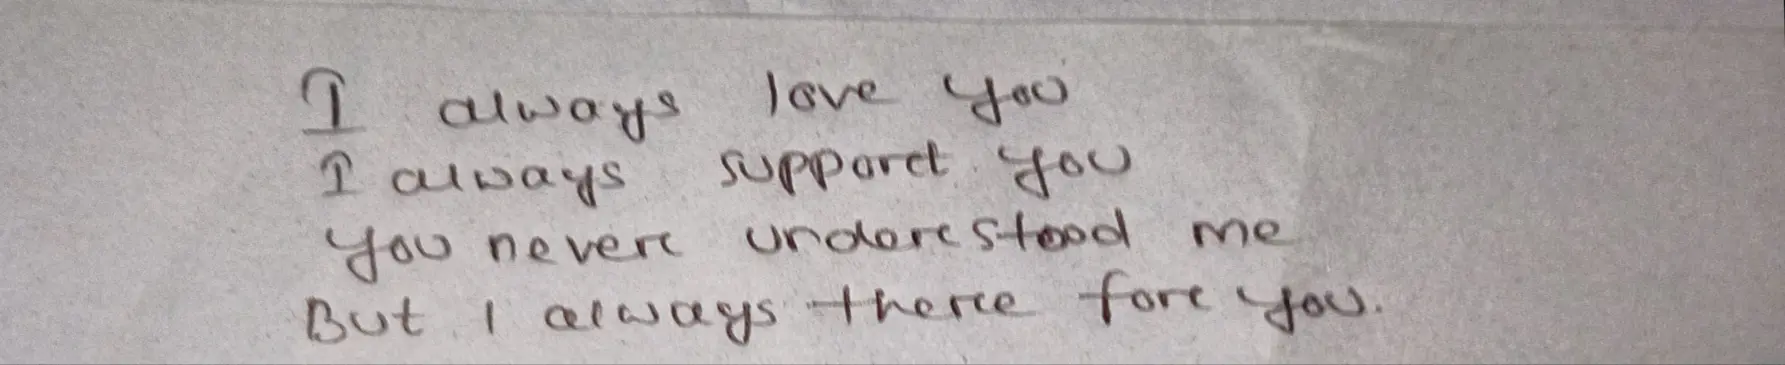 I always love you
I always support you
You never understood me
But I always there for you.